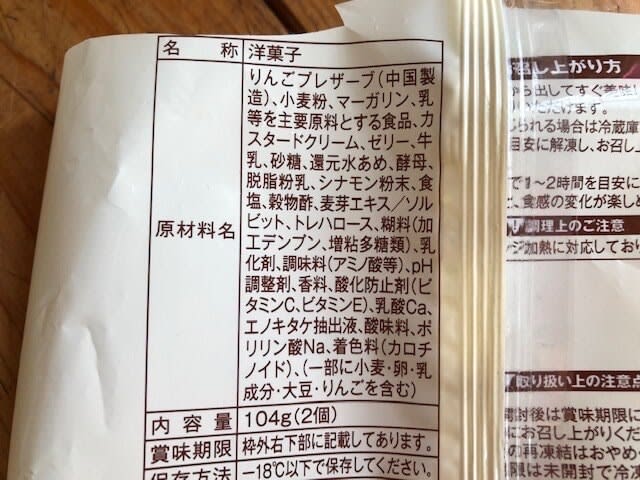 名称 洋菓子
原材料名
りんごプレザーブ(中国製
造)、小麦粉、マーガリン、乳
等を主要原料とする食品、カ
スタードクリーム、ゼリー、牛
乳、砂糖、還元水あめ、酵母、
脱脂粉乳、シナモン粉末、食
塩、穀物酢、麦芽エキス/ソル
ビット、トレハロース、糊料(加
工デンプン、増粘多糖類)、乳
化剤、調味料(アミノ酸等)、pH
調整剤、香料、酸化防止剤(ビ
タミンC、ビタミンE)、乳酸Ca、
エノキタケ抽出液、酸味料、ポ
リリン酸Na、着色料(カロチ
ノイド)、(一部に小麦・卵・乳
成分・大豆・りんごを含む)
内容量 104g(2個)
賞味期限 枠外右下部に記載してあります。
保存方法 −18℃以下で保存してください。
召し上がり方
ら出してすぐ美味し
いただけます。
られる場合は冷蔵庫
目安に解凍し、お召し
で1~2時間を目安に
、食感の変化が楽しめ
調理上のご注意
ジ加熱に対応してお
取り扱い上の注意点
開封後は賞味期限
にお召し上がりくだ
の再凍結はおやめ
限は未開封で冷凍